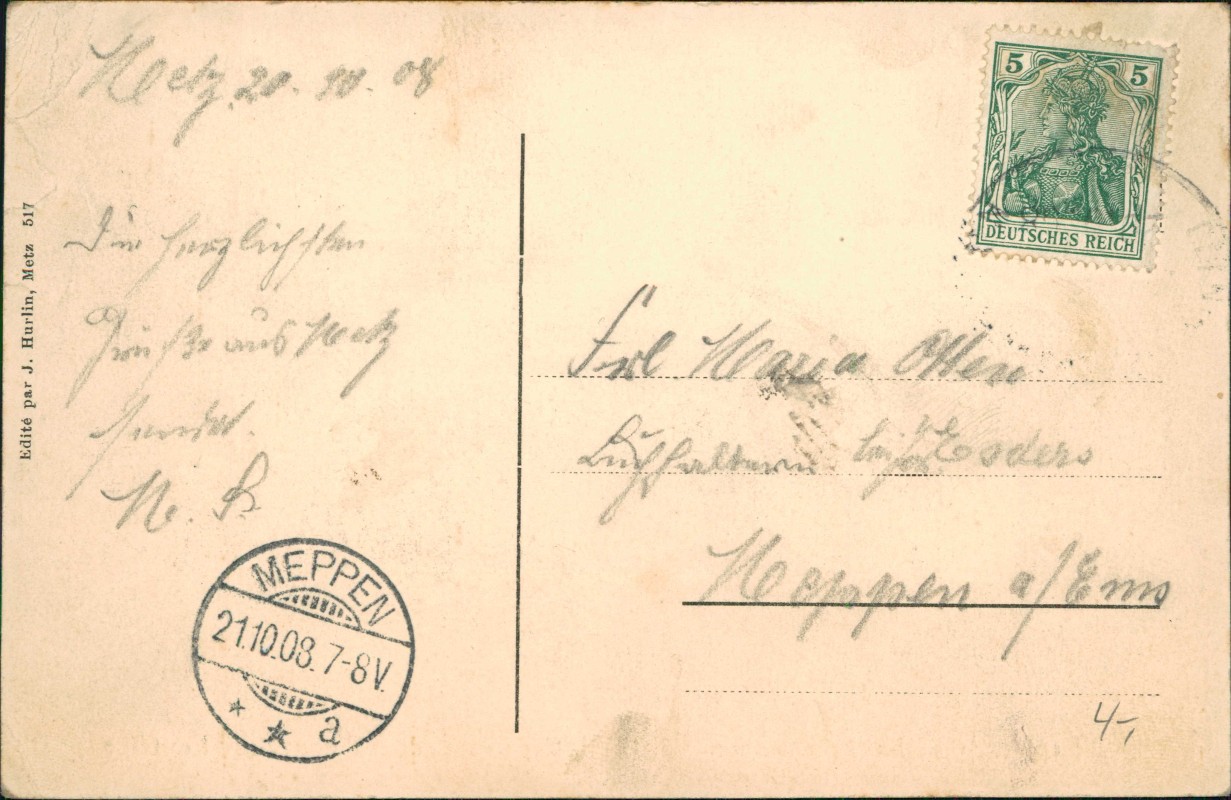 Metz, 20. 10. 08
Die herzlichsten
Grüße aus Metz
sendet.
M. B.
Edité par J. Hurlin, Metz 517
5 5
DEUTSCHES REICH
Frl Maria Otten
Buchhalterin bei Esders
Meppen a/Ems
MEPPEN
21.10.08. 7-8V.
* * a
4-,